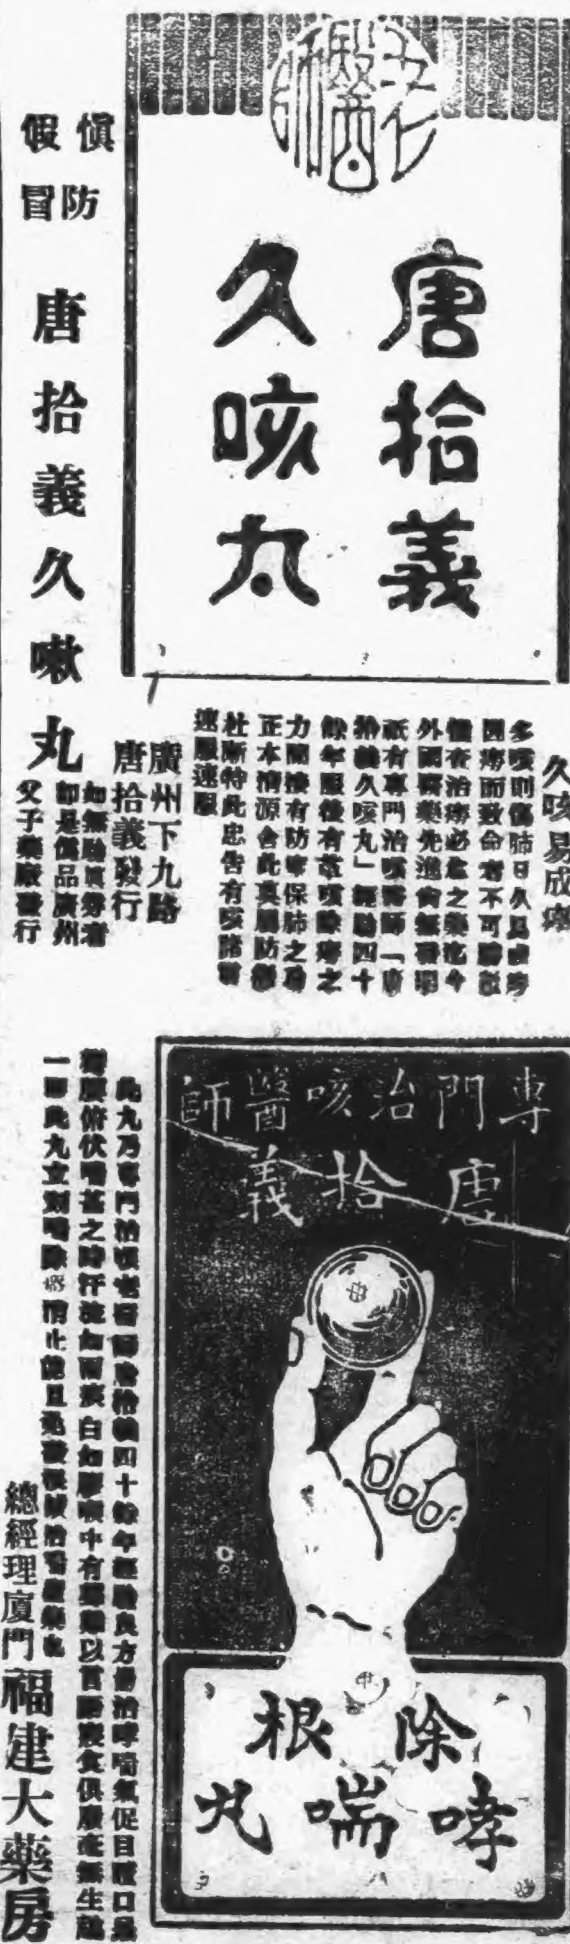 老牌
醫師
唐拾義
久咳丸
久咳易成癆
多咳則傷肺日久且成癆
因癆而致命者不可勝數
惟在治癆必愈之藥迄今
外國醫藥先進尚無發明
祇有專門治咳醫師「唐
拾義久咳丸」經驗四十
餘年服後有當咳除癆之
力間接有防癆保肺之功
正本清源舍此莫屬防微
杜漸特此忠告有咳諸君
速服速服
廣州下九路
唐拾義發行
慎防
假冒
唐拾義久嗽丸
如無
即是偽品廣州
父子藥廠發行
專門治咳醫師
唐拾義
除根
哮喘丸
此丸乃專門治咳老醫師唐拾義四十餘年經驗良方專治哮喘氣促目瞪口呆
俯伏喘甚之時汗流如雨痰白如膠喉中有聲難以言語寢食俱廢毫無生趣
一服此丸立刻喘除
總經理廈門福建大藥房